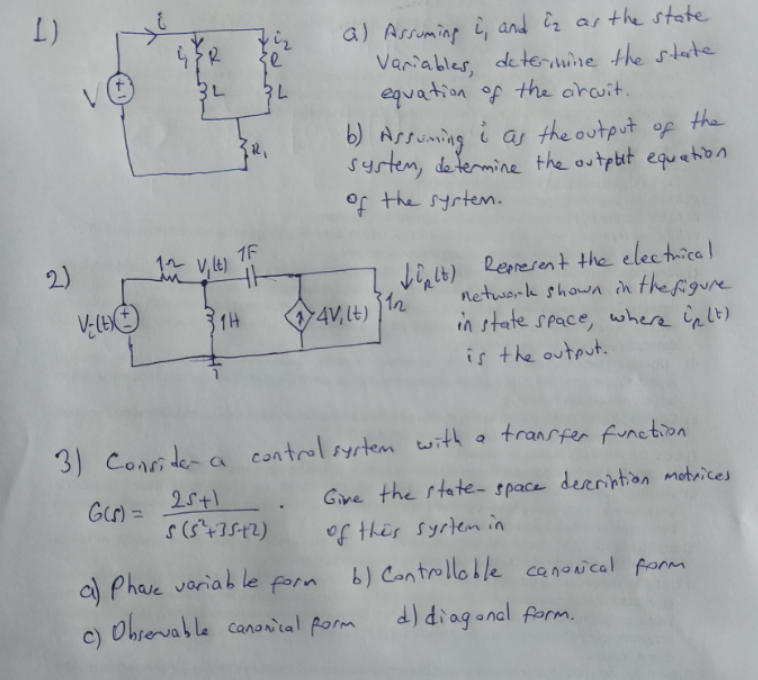 1)
i
i₁
R
L
i₂
R
L
V
R₁
a) Assuming i₁ and i₂ as the state
Variables, determine the state
equation of the circuit.
b) Assuming i as the output of the
system, determine the output equation
of the system.
2)
1Ω
V₁(t)
1F
Vᵢ(t)
1H
4V₁(t)
1Ω
↓i_R(t)
Represent the electrical
network shown in the figure
in state space, where i_R(t)
is the output.
3) Consider a control system with a transfer function
G(s) = (2s+1) / (s(s²+3s+2)) . Give the state-space description matrices
of this system in
a) Phase variable form b) Controllable canonical form
c) Observable canonical form d) diagonal form.